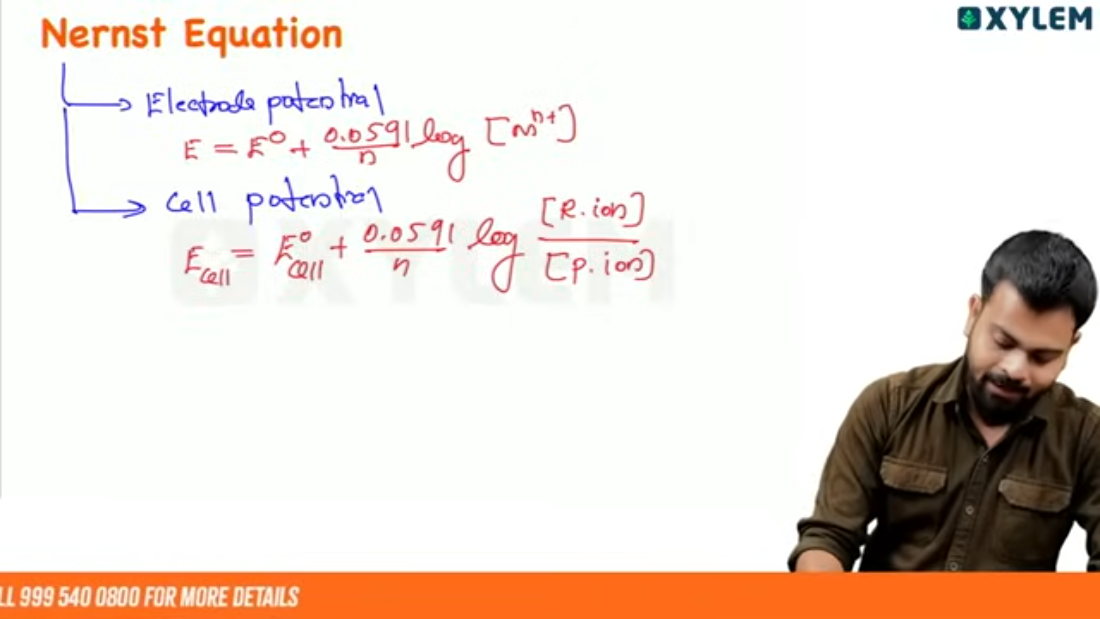 Nernst Equation
XYLEM
Electrode potential
E = E⁰ + 0.0591/n log [Mⁿ⁺]
Cell potential
E_cell = E⁰_cell + 0.0591/n log [R.ion]/[P.ion]
XYLEM
LL 999 540 0800 FOR MORE DETAILS